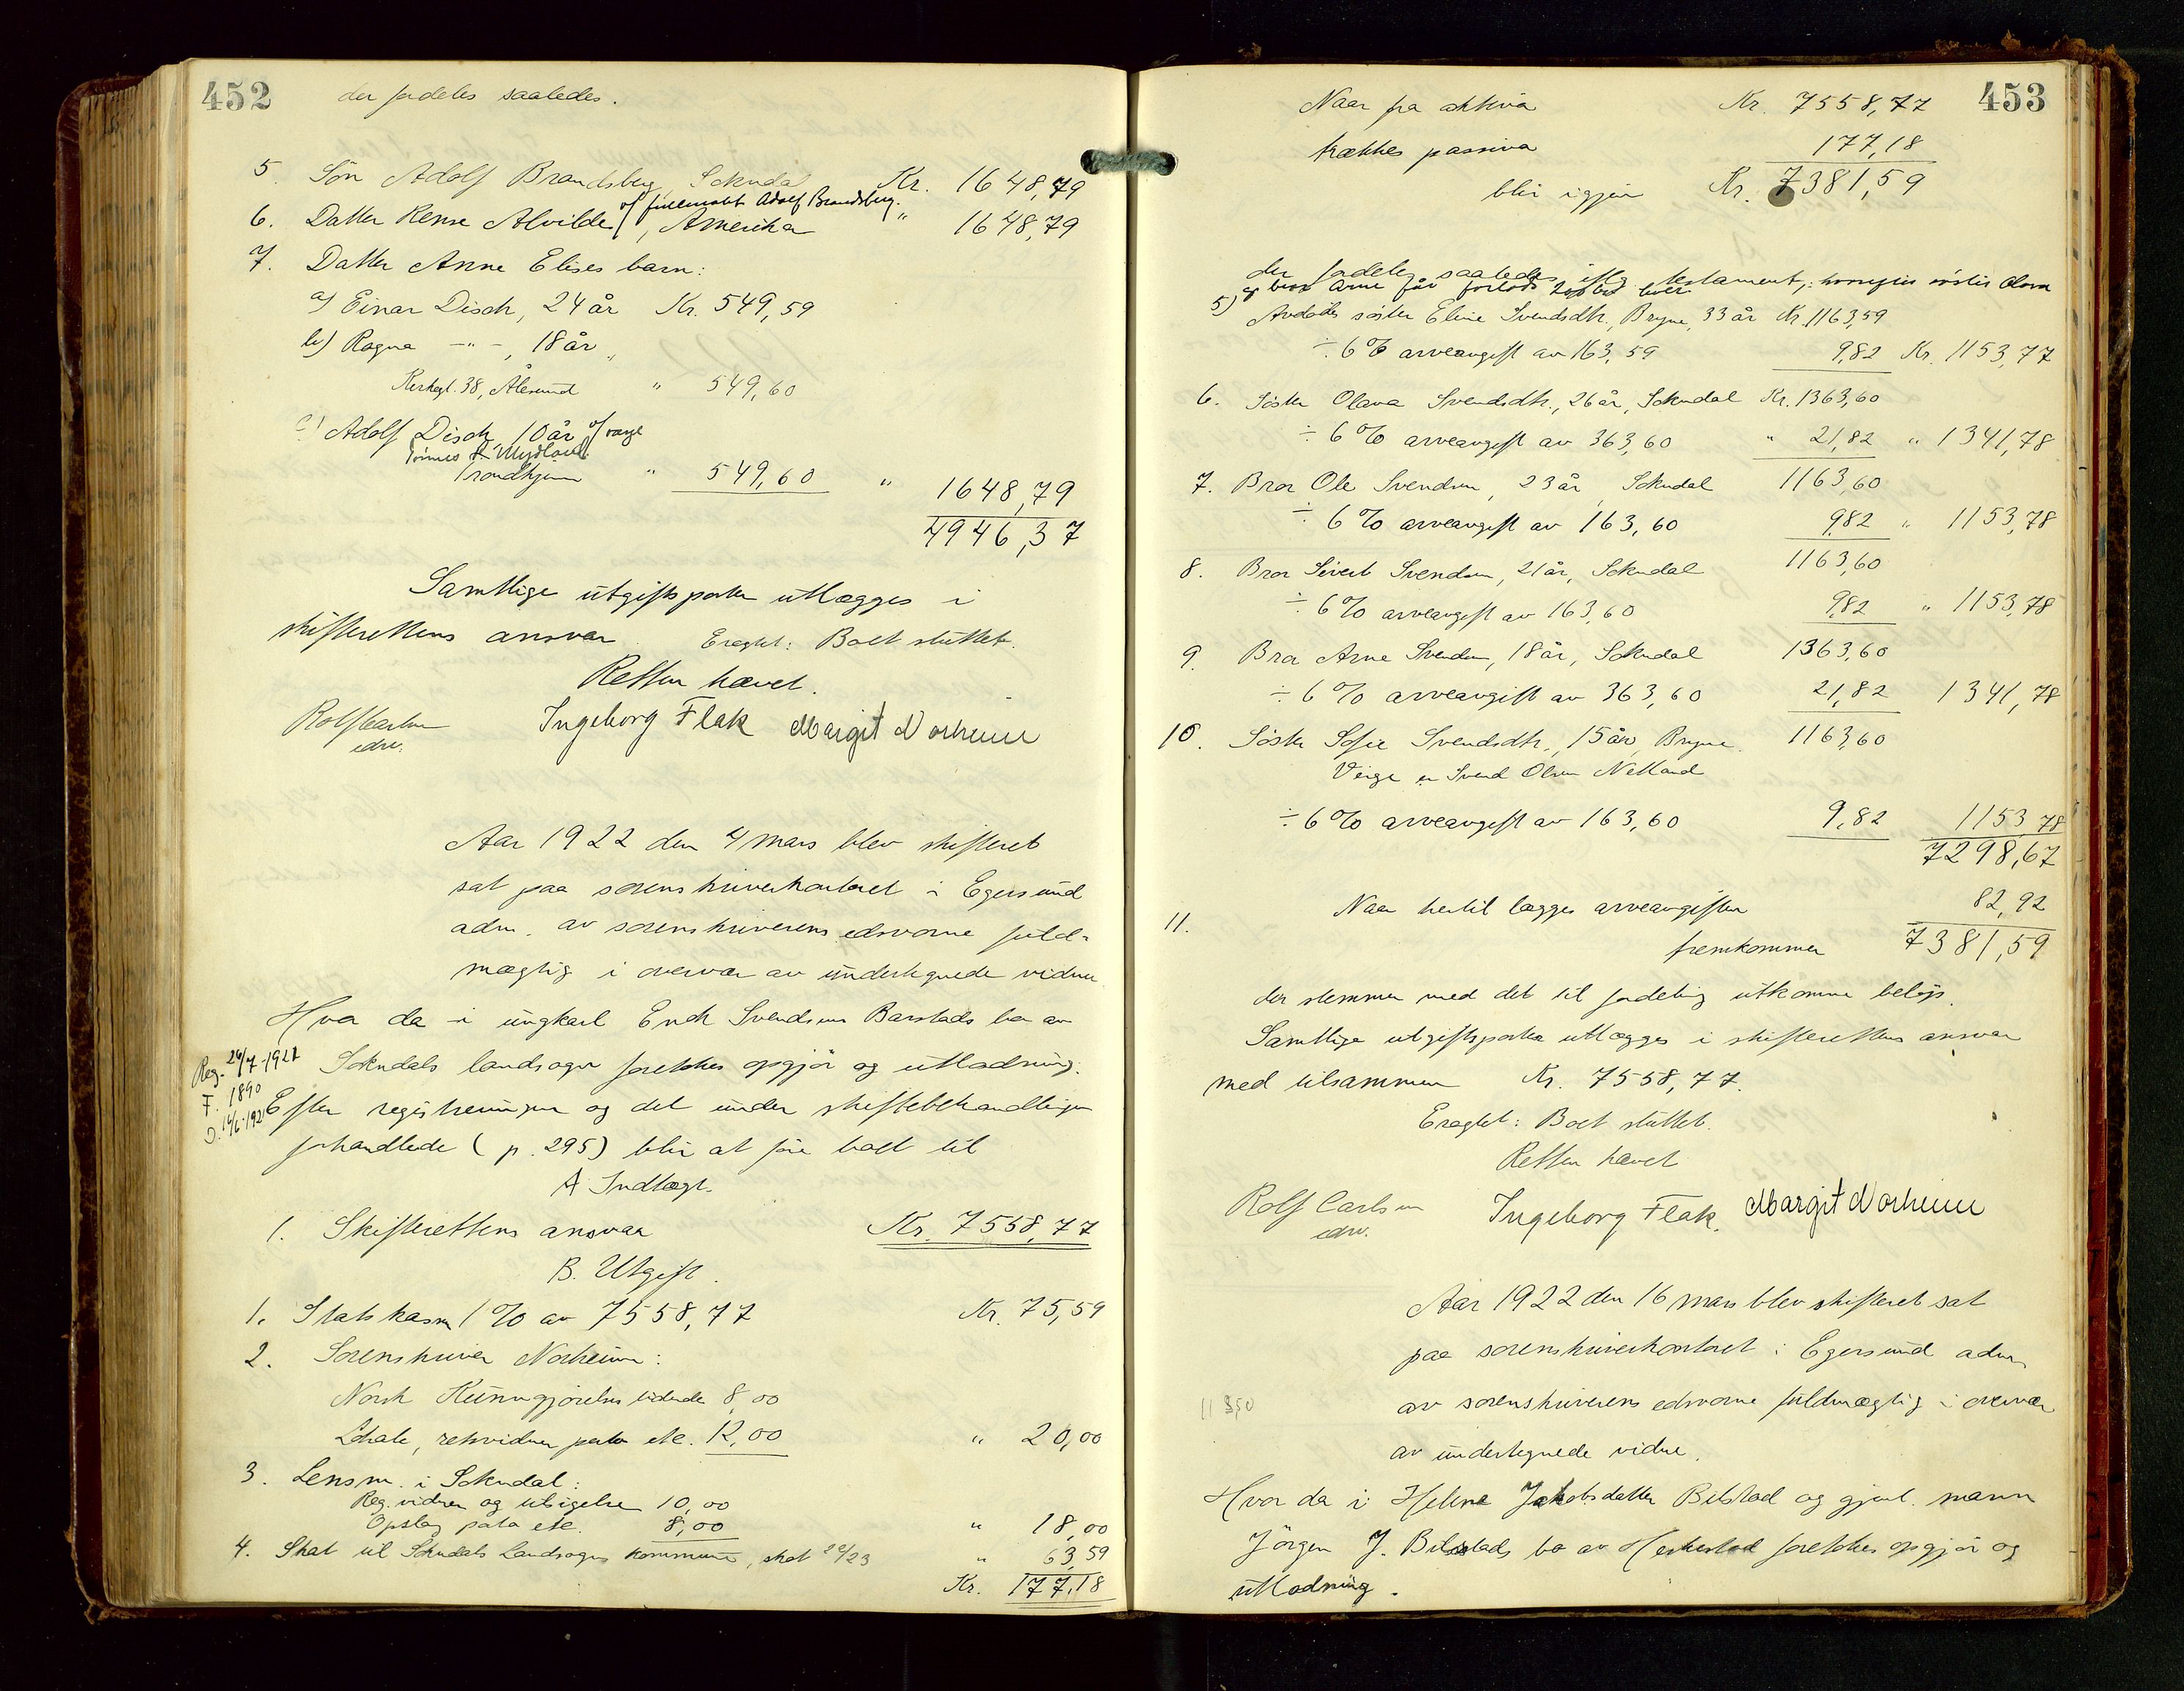 452
der fordeles saaledes.
5. Søn Adolf Brandsberg, Sokndal Kr. 1648,79
v/ fullmakt Adolf Brandsberg.
6. Datter Rense Alvilde, Amerika " 1648,79
7. Datter Anne Elises barn:
a) Einar Disch, 24 år Kr. 549,59
b) Ragna -"-, 18 år
Kirkegt. 38, Ålesund " 549,60
c) Adolf Disch, 10 år v/ verge
Trondhjem " 549,60 " 1648,79
4946,37
Samtlige utgiftsposter utlægges i
skifterettens ansvar. Eragtet: Boet sluttet.
Retten hævet.
Rolf Carlsen
edsv.
Ingeborg Flak Margit Norheim
Aar 1922 den 4 mars blev skifteret
sat paa sorenskriverkontoret i Egersund
adm. av sorenskriverens edsvorne fuld-
mægtig i overvær av undertegnede vidne
Hvor da i ungkarl Enok Svendsens Barstads bo av
Sokndals landsogn foretokes opgjør og utlodning.
Reg. 29/7-1921
F. 1890
D. 14/6-1921
Efter registreringen og det under skiftebehandlingen
forhandlede (p. 295) blir at føre boet til
A Indtægt.
1. Skifterettens ansvar Kr. 7558,77
B. Utgift.
1. Statskassen 1% av 7558,77 Kr. 75,59
2. Sorenskriver Norheim:
Norsk Kunngjørelsestidende 8,00
Lokale, retsvidner porto etc. 12,00 " 20,00
3. Lensm. i Sokndal:
Reg. vidner og utsigelse 10,00
Opslag porto etc. 8,00 " 18,00
4. Skat til Sokndals Landsogns kommune, skat 22/23 " 63,59
Kr. 177,18
453
Naar fra aktiva Kr. 7558,77
trækkes passiva 177,18
blir igjen Kr. 7381,59
der fordeles saaledes iflg. testament, hvorefter søster Olava
og bror Arne får forlods 200 kr hver
5) Avdødes søster Eline Svendsdtr., Bryne, 33 år Kr. 1163,59
÷ 6% arveavgift av 163,59 9,82 Kr. 1153,77
6. Søster Olava Svendsdtr., 26 år, Sokndal Kr. 1363,60
÷ 6% arveavgift av 363,60 " 21,82 " 1341,78
7. Bror Ole Svendsen, 23 år, Sokndal 1163,60
÷ 6% arveavgift av 163,60 9,82 " 1153,78
8. Bror Sivert Svendsen, 21 år, Sokndal 1163,60
÷ 6% arveavgift av 163,60 9,82 " 1153,78
9. Bror Arne Svendsen, 18 år, Sokndal 1363,60
÷ 6% arveavgift av 363,60 21,82 1341,78
10. Søster Sofie Svendsdtr., 15 år, Bryne. 1163,60
Verge er Svend Olsen Netland
÷ 6% arveavgift av 163,60 9,82 1153 78
7298,67
11. Naar hertil lægges arveavgiften 82,92
fremkommer 7381,59
der stemmer med det til fordeling utkomne beløp.
Samtlige utgiftsposter utlægges i skifterettens ansvar
med tilsammen Kr. 7558,77.
Eragtet: Boet sluttet.
Retten hævet
Rolf Carlsen
edsv.
Ingeborg Flak. Margit Norheim
Aar 1922 den 16 mars blev skifteret sat
paa sorenskriverkontoret i Egersund adm.
av sorenskriverens edsvorne fuldmægtig i overvær
av undertegnede vidne.
Hvor da i Helene Jakobsdatter Bilstad og gjenl. mann
Jörgen J. Bilstads bo av Heskestad foretokes opgjør og
utlodning.